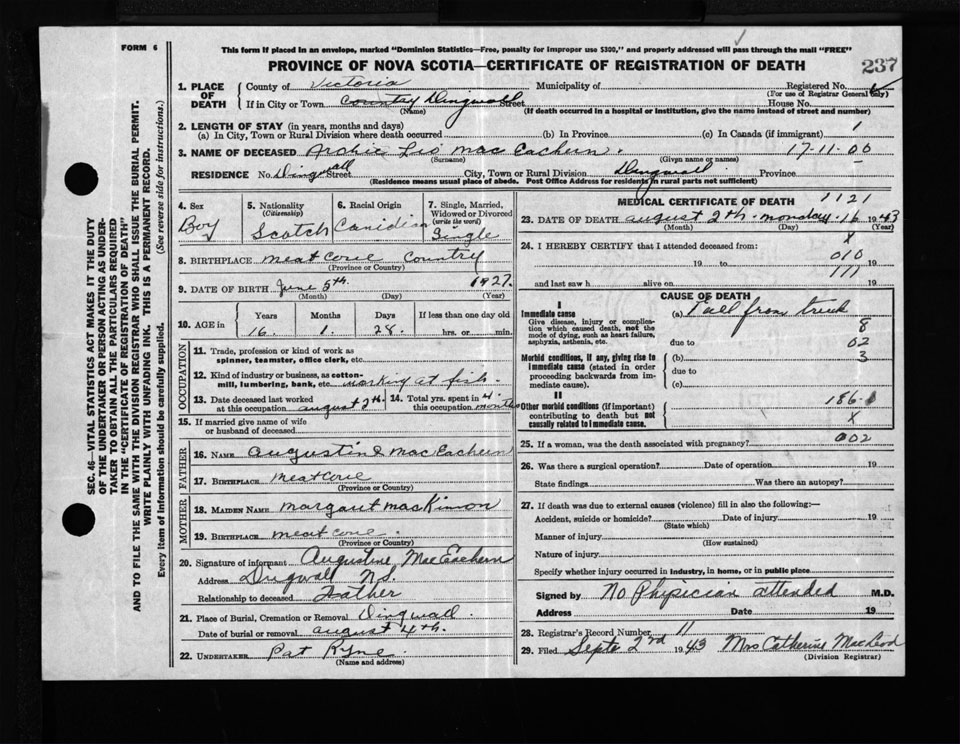 FORM 6
This form if placed in an envelope, marked "Dominion Statistics—Free, penalty for improper use $300," and properly addressed will pass through the mail "FREE"
PROVINCE OF NOVA SCOTIA—CERTIFICATE OF REGISTRATION OF DEATH
237
SEC. 46—VITAL STATISTICS ACT MAKES IT THE DUTY
OF THE UNDERTAKER OR PERSON ACTING AS UNDER-
TAKER TO OBTAIN ALL THE PARTICULARS REQUIRED
IN THE "CERTIFICATE OF REGISTRATION OF DEATH"
AND TO FILE THE SAME WITH THE DIVISION REGISTRAR WHO SHALL ISSUE THE BURIAL PERMIT.
WRITE PLAINLY WITH UNFADING INK. THIS IS A PERMANENT RECORD.
Every item of information should be carefully supplied. (See reverse side for instructions.)
1. PLACE OF DEATH
County of Victoria Municipality of Registered No.
(For use of Registrar General only)
If in City or Town Country Dingwall Street House No.
(Name) (If death occurred in a hospital or institution, give the name instead of street and number)
2. LENGTH OF STAY (in years, months and days)
(a) In City, Town or Rural Division where death occurred (b) In Province (c) In Canada (if immigrant) 1
3. NAME OF DECEASED Archie Leo Mac Eachern. 17-11-00
(Surname) (Given name or names)
RESIDENCE No. Dingwall Street City, Town or Rural Division Dingwall Province
(Residence means usual place of abode. Post Office Address for residents in rural parts not sufficient)
4. Sex
Boy
5. Nationality
(Citizenship)
Scotch
6. Racial Origin
Canidian
7. Single, Married,
Widowed or Divorced
(write the word)
Single
8. BIRTHPLACE Meat Cove Country
(Province or Country)
9. DATE OF BIRTH June 5th. 1927.
(Month) (Day) (Year)
10. AGE in Years Months Days If less than one day old
16. 1. 28. hrs. or min.
OCCUPATION
11. Trade, profession or kind of work as
spinner, teamster, office clerk, etc.
12. Kind of industry or business, as cotton-
mill, lumbering, bank, etc. working at fish.
13. Date deceased last worked
at this occupation august 2th.
14. Total yrs. spent in 4
this occupation months
15. If married give name of wife
or husband of deceased
FATHER
16. NAME Augustine MacEachern
17. BIRTHPLACE Meat Cove
(Province or Country)
MOTHER
18. MAIDEN NAME Margaret MacKinnon
19. BIRTHPLACE meat cove.
(Province or Country)
20. Signature of informant Augustine MacEachern
Address Dingwall N.S.
Relationship to deceased Father
21. Place of Burial, Cremation or Removal Dingwall.
Date of burial or removal august 4th.
22. UNDERTAKER Pat Ryne.
(Name and address)
MEDICAL CERTIFICATE OF DEATH 1121
23. DATE OF DEATH august 2th. monday. 16 1943
(Month) (Day) (Year)
24. I HEREBY CERTIFY that I attended deceased from: X
19 to 010 19
and last saw h alive on 111 19
CAUSE OF DEATH
I
Immediate cause
Give disease, injury or complication which caused death, not the mode of dying, such as heart failure, asphyxia, asthenia, etc.
(a) Fall from truck
8
due to 02
Morbid conditions, if any, giving rise to immediate cause (stated in order proceeding backwards from immediate cause).
(b) 3
due to
(c)
II
Other morbid conditions (if important) contributing to death but not causally related to immediate cause.
186.
X
25. If a woman, was the death associated with pregnancy? 002
26. Was there a surgical operation? Date of operation 19
State findings Was there an autopsy?
27. If death was due to external causes (violence) fill in also the following:—
Accident, suicide or homicide? Date of injury 19
(State which)
Manner of injury
(How sustained)
Nature of injury
Specify whether injury occurred in industry, in home, or in public place
Signed by No Phisician attended M.D.
Address Date 19
28. Registrar's Record Number 11
29. Filed Septe 2nd 1943 Mrs Catherine MacLeod
(Division Registrar)